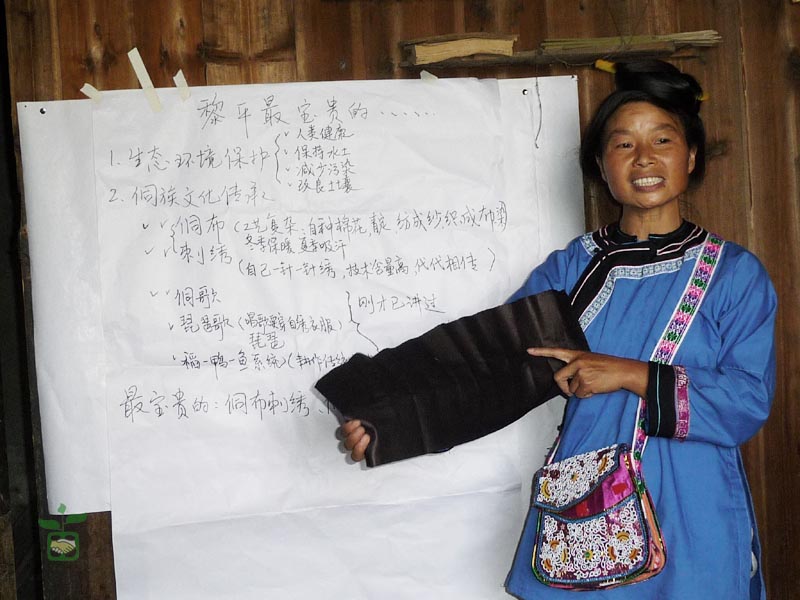 黎平最宝贵的......
1. 生态环境保护
人类健康
保持水土
减少污染
改良土壤
2. 侗族文化传承
侗布 (工艺复杂:自种棉花 靛 纺成纱 织成布 染
冬季保暖 夏季吸汗
刺绣
(自己一针一针绣,技术含量高,代代相传)
侗歌
琵琶歌 (唱歌要穿自绣衣服)
琵琶
刚才已讲过
稻-鸭-鱼系统 (耕作传统
最宝贵的:侗布刺绣、